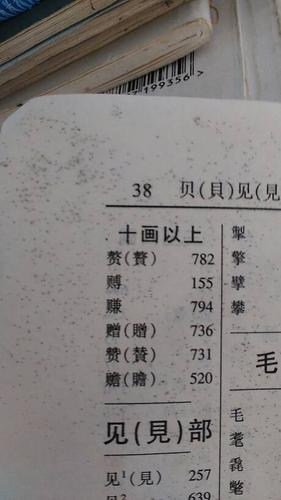 199356 >
38 贝(貝)见(見
十画以上
赘(贅) 782
赙 155
赚 794
赠(贈) 736
赞(賛) 731
赡(贍) 520
见(見)部
见¹(見) 257
见² 639
擎
擘
攀
毛
毛
耄
毳
氅